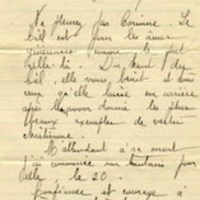 Ne pleurez pas Corinne. Le
ciel est pour les âmes
généreuses comme le fut
celle-là. Du haut du
ciel, elle vous bénit et tous
ceux qu'elle laisse en arrière
après leur avoir donné les plus
beaux exemples de vertu
chrétienne.
M'attendant à sa mort
j'ai commencé un trentain pour
elle, le 20.
Confiance et courage à